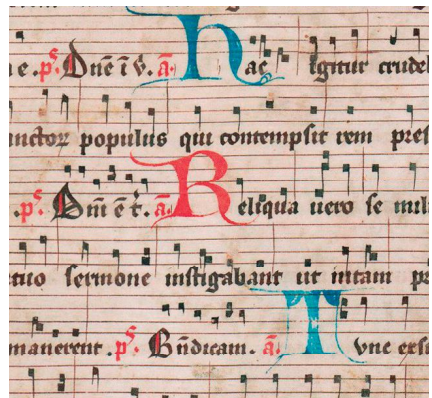 e . ps. Dñe ī v. ā. hac igitur crudel
nctoꝝ populus qui contempsit rem pres
. ps. Dm̄ ē t. ā. Reliqua uero se mili
tuo sermone instigabant ut uitam pr
manerent . ps. Bn̄dicam. ā. Tunc exsu